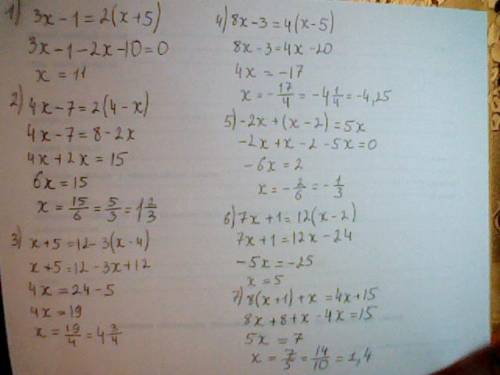 1) 3x-1=2(x+5)
3x-1-2x-10=0
x=11
2) 4x-7=2(4-x)
4x-7=8-2x
4x+2x=15
6x=15
x=15/6=5/3=1 2/3
3) x+5=12-3(x-4)
x+5=12-3x+12
4x=24-5
4x=19
x=19/4=4 3/4
4) 8x-3=4(x-5)
8x-3=4x-20
4x=-17
x=-17/4=-4 1/4=-4,25
5) -2x+(x-2)=5x
-2x+x-2-5x=0
-6x=2
x=-2/6=-1/3
6) 7x+1=12(x-2)
7x+1=12x-24
-5x=-25
x=5
7) 8(x+1)+x=4x+15
8x+8+x-4x=15
5x=7
x=7/5=14/10=1,4